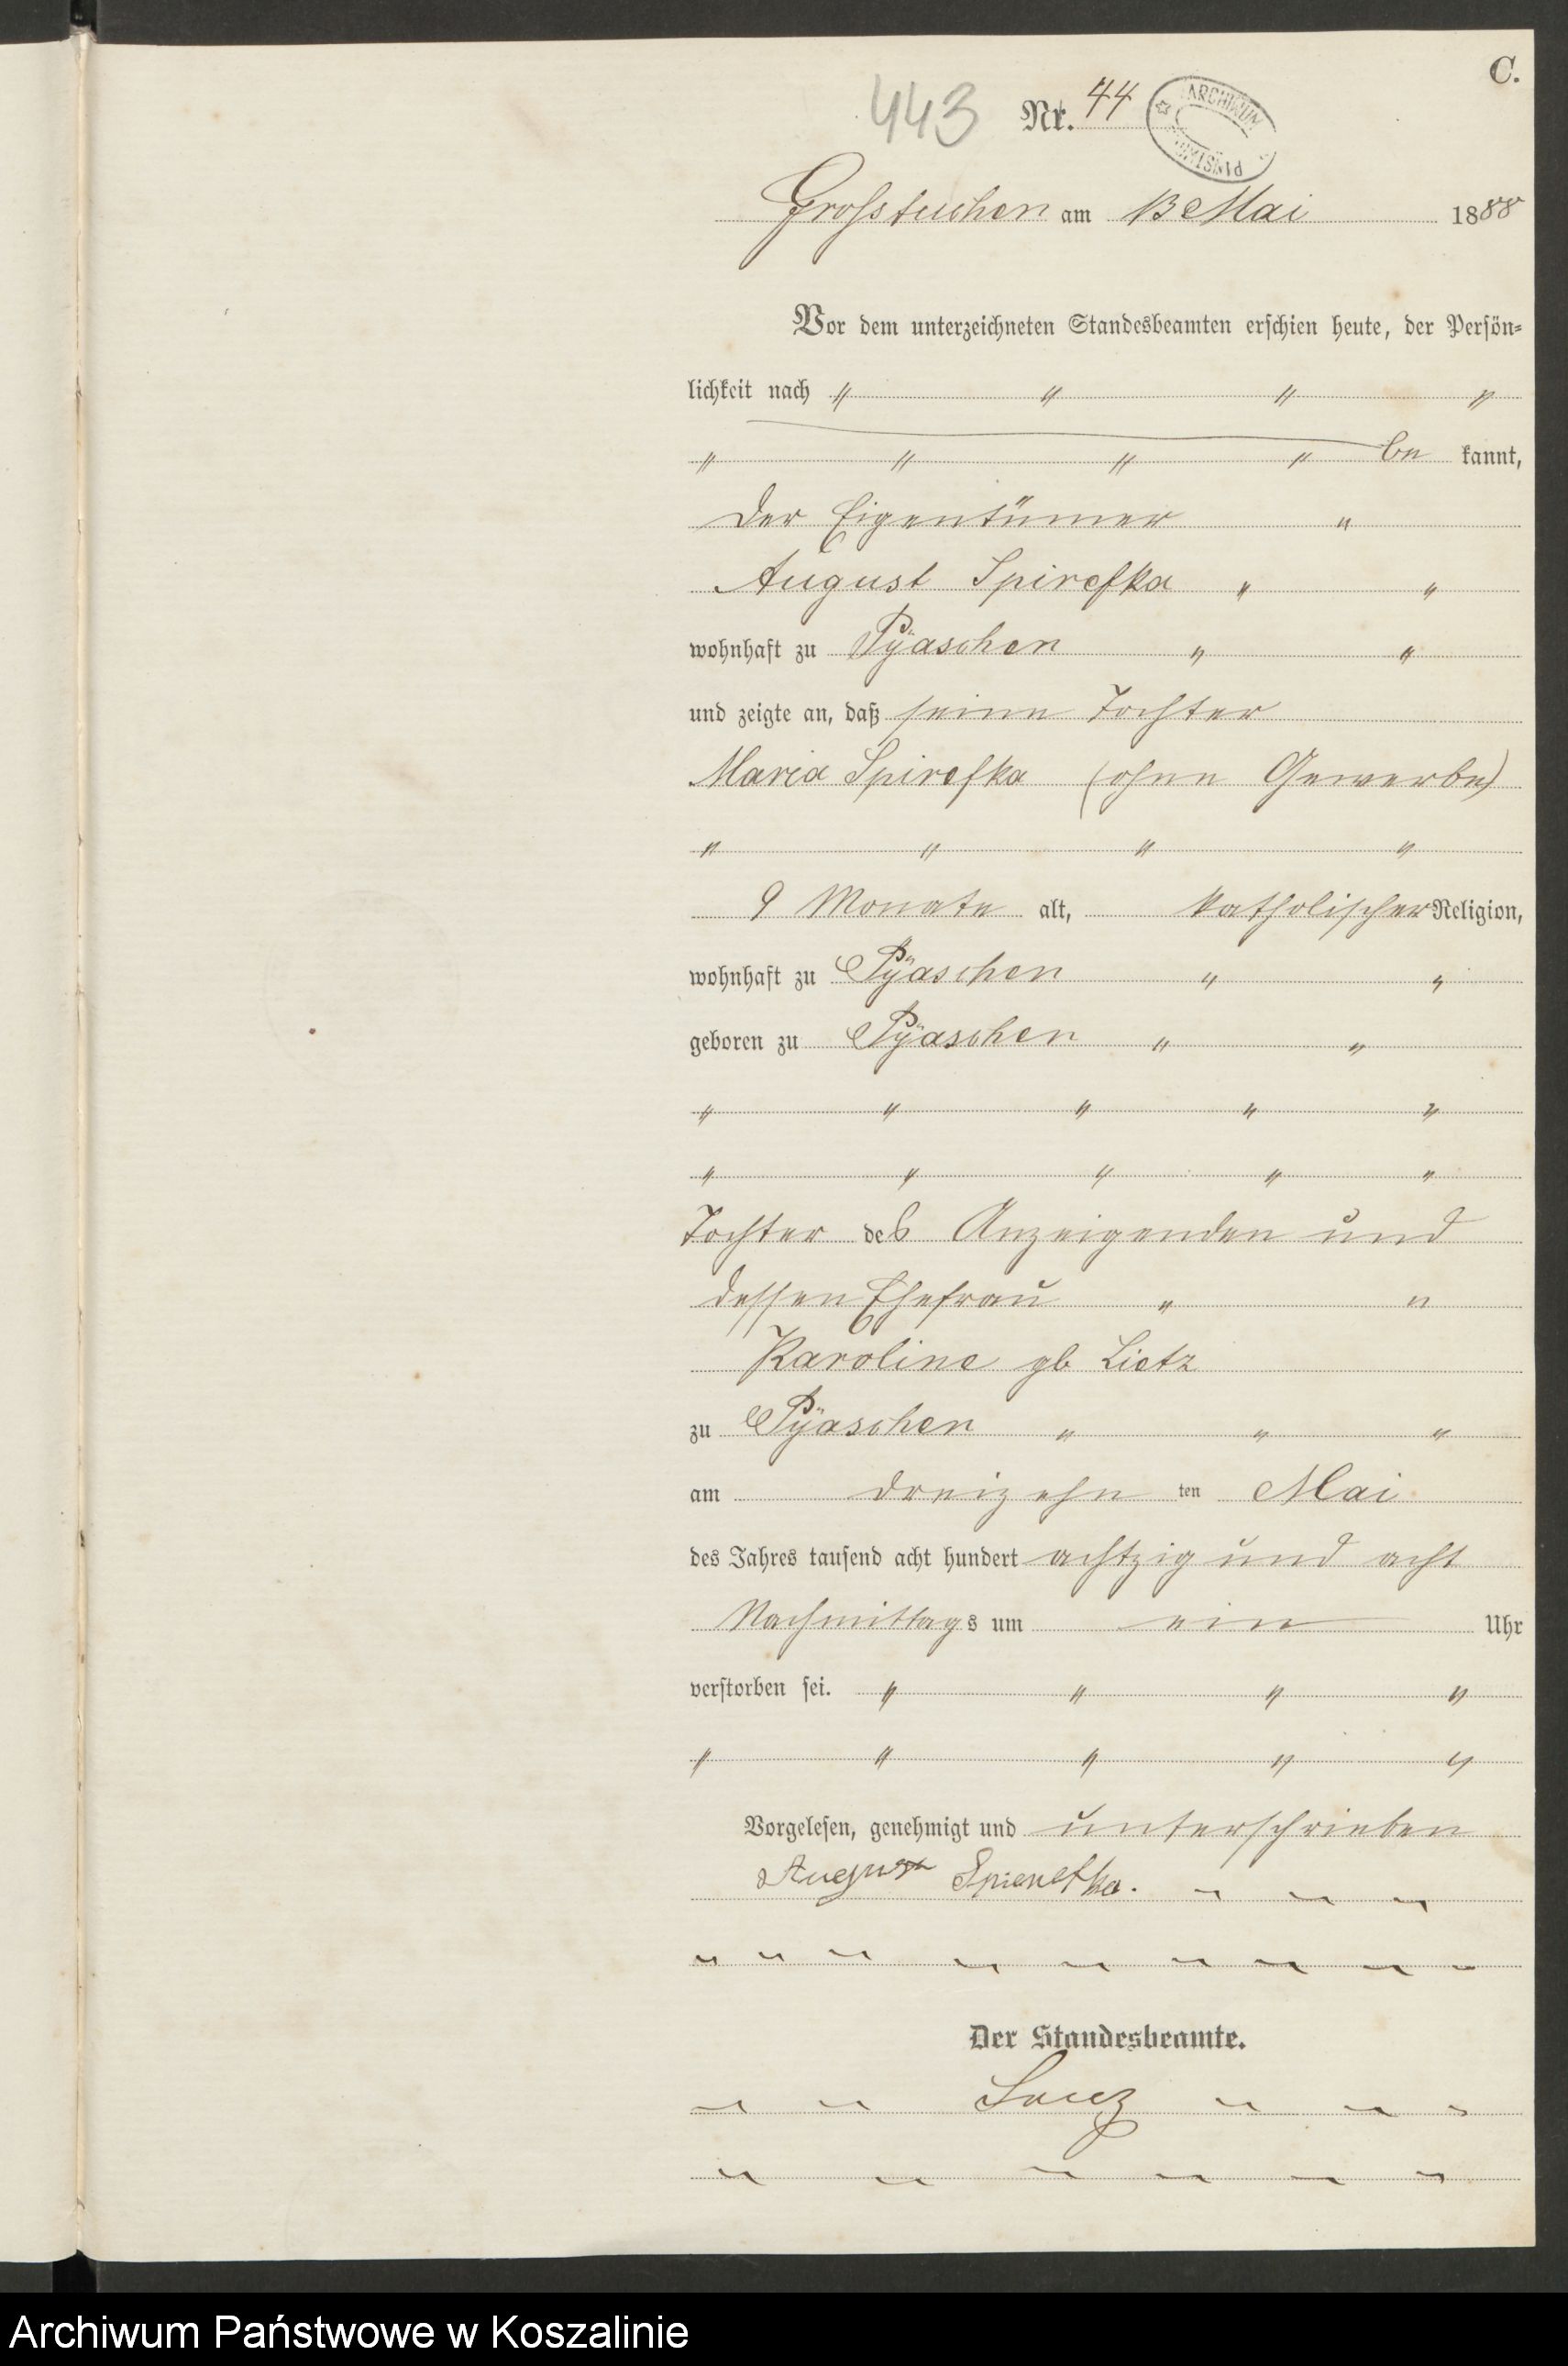 C.
443 Nr. 44
ARCHIWUM PAŃSTWOWE
Grosstuchen am 13 Mai 1888
Vor dem unterzeichneten Standesbeamten erschien heute, der Persön-
lichkeit nach " " " "
" " " " be kannt,
der Eigentümer "
August Spirefka " "
wohnhaft zu Pÿaschen " "
und zeigte an, daß seine Tochter
Maria Spirefka (ohne Gewerbe)
" " " "
9 Monate alt, katholischer Religion,
wohnhaft zu Pÿaschen " "
geboren zu Pÿaschen " "
" " " " "
" " " " "
Tochter des Anzeigenden und
dessen Ehefrau " "
Karoline gb Lietz
zu Pÿaschen " " "
am dreizehn ten Mai
des Jahres tausend acht hundert achtzig und acht
Nachmittags um ein Uhr
verstorben sei. " " " "
" " " " "
Vorgelesen, genehmigt und unterschrieben
August Spierefka. " " "
" " " " " " " " "
Der Standesbeamte.
" " " " "
" " " " " "
Archiwum Państwowe w Koszalinie